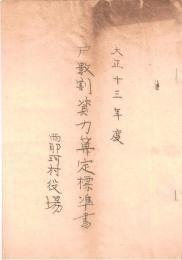 大正十三年度
戸数割資力算定標準書
西那珂村役場